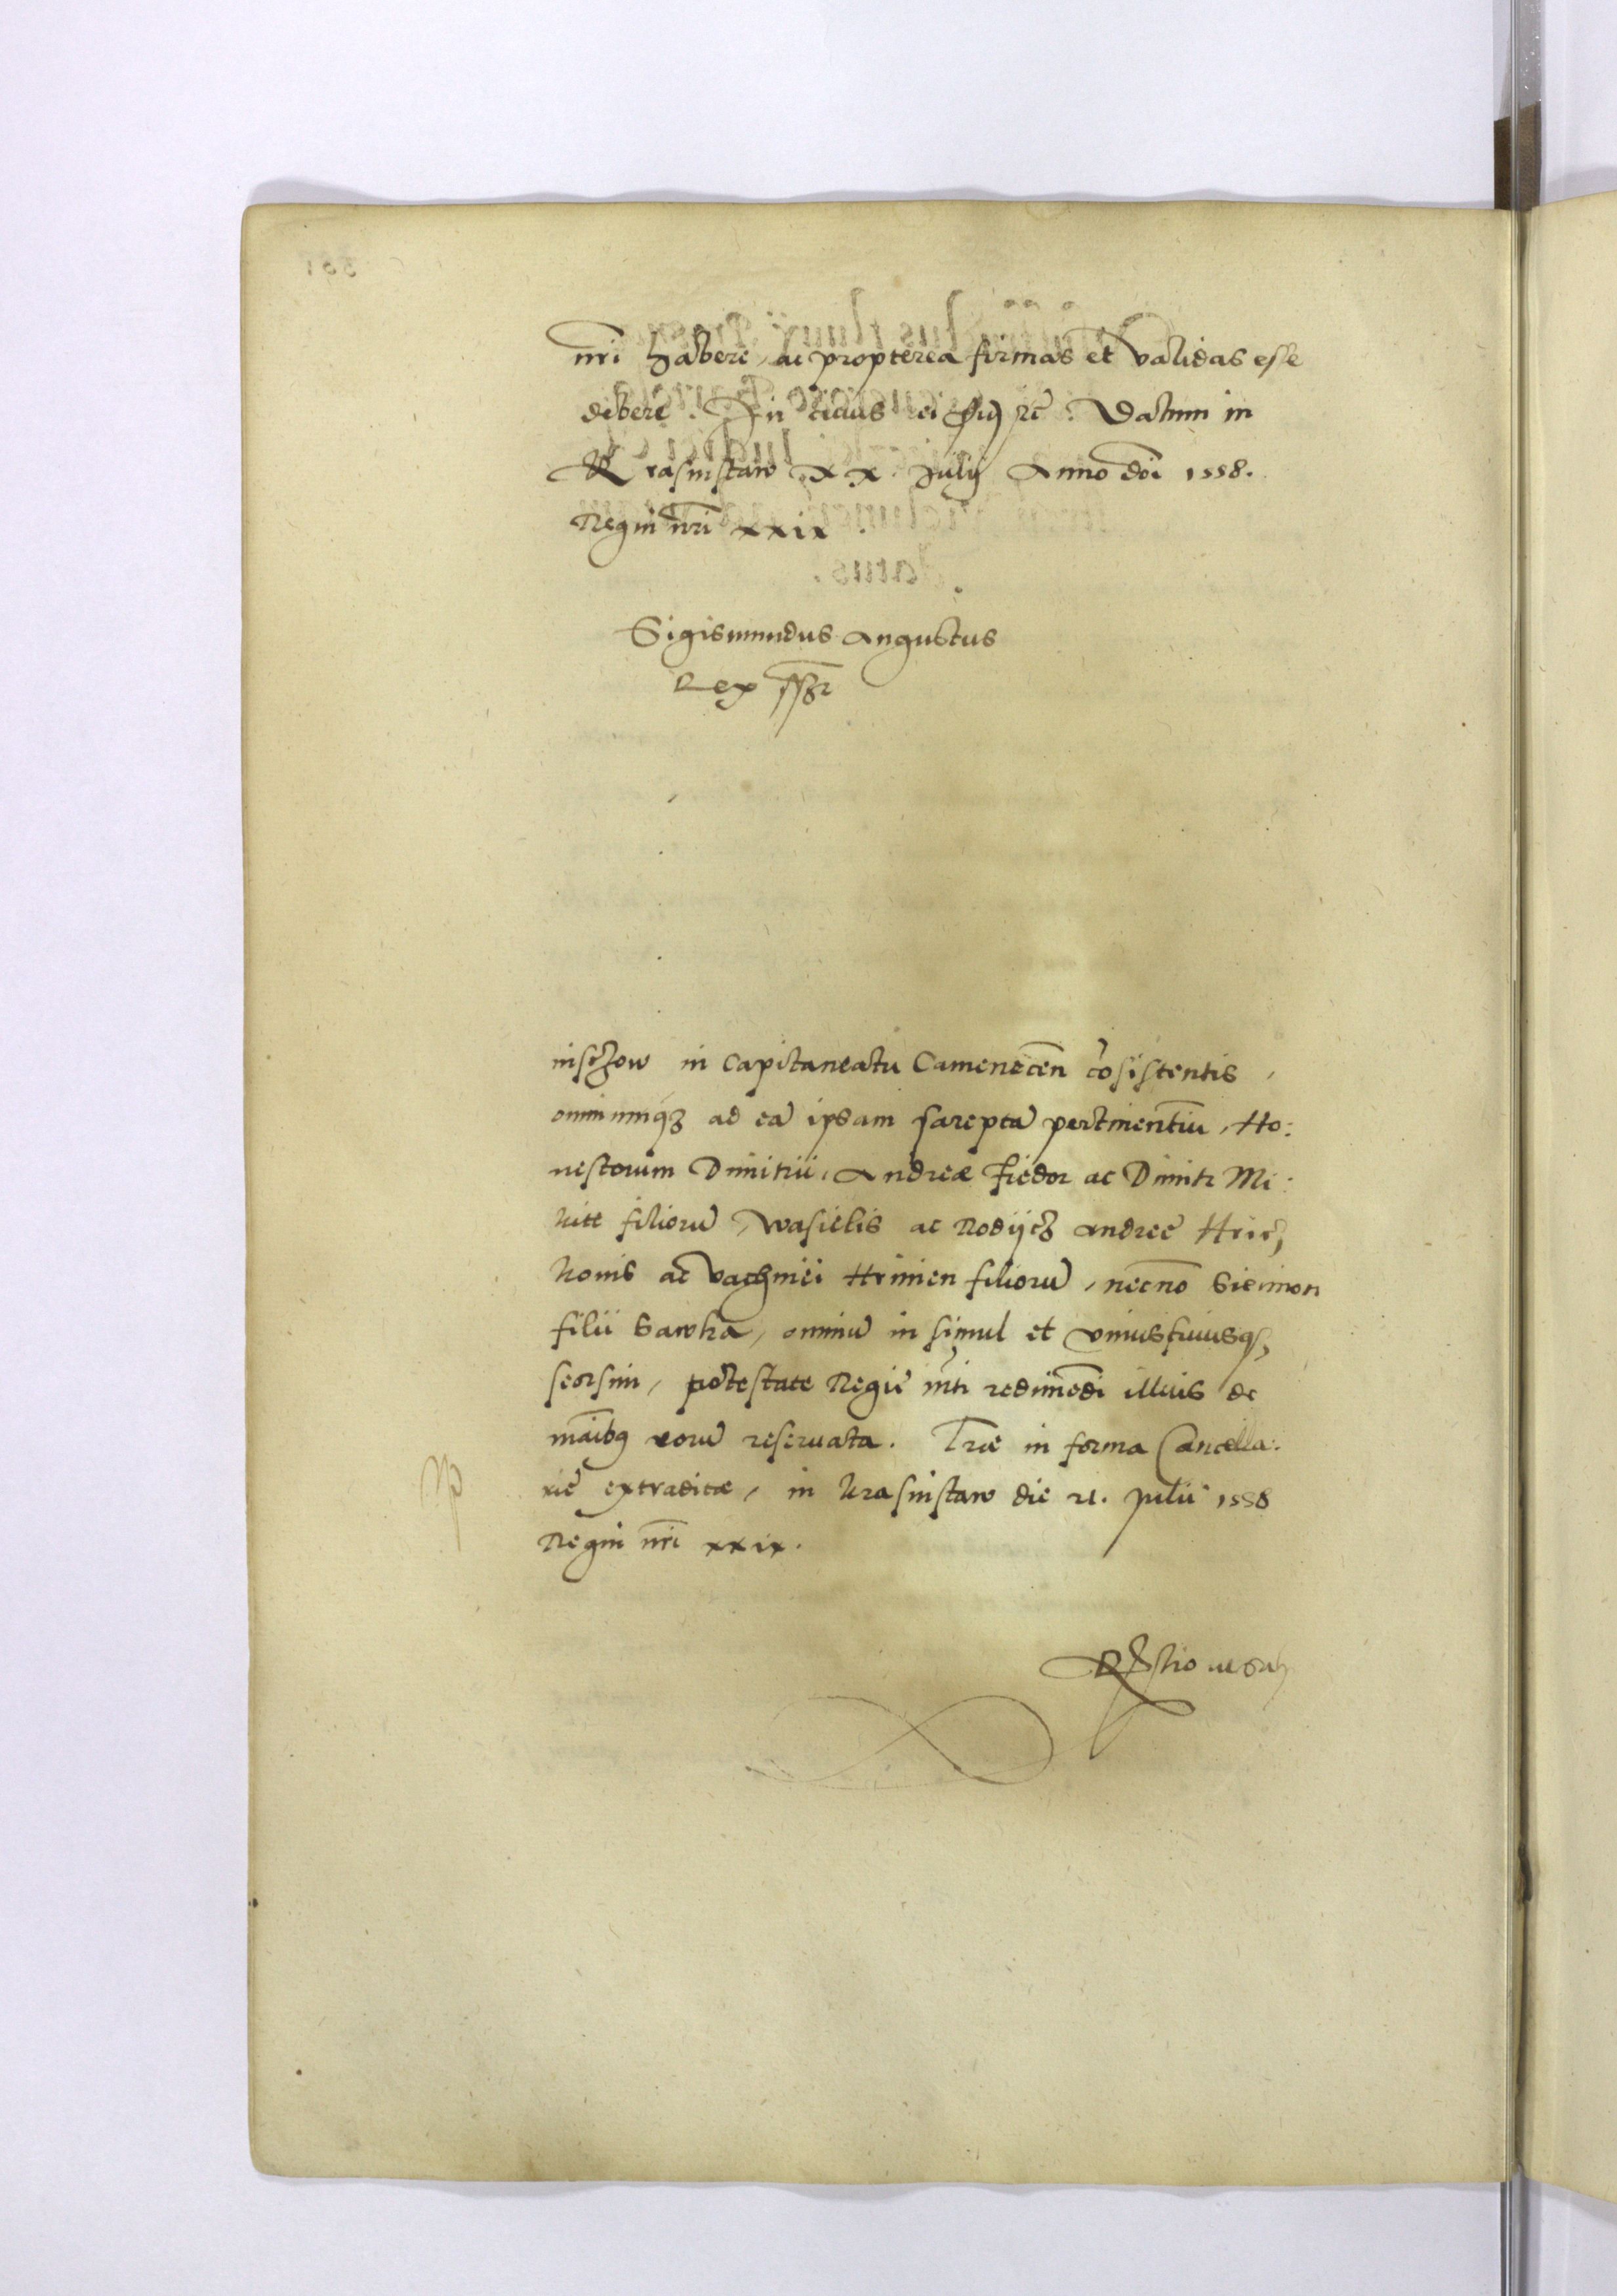 nri habere, ac propterea firmas et validas esse
debere. In cuius rei fidẽ etc. Datum in
Krasnistaw XX Julij Anno doi 1558.
Regni nri xxix
Sigismundus Augustus
Rex sszr
nischow in Capitaneatu Camenecen cõsistentis,
omniumqz ad eã ipsam sareptã pertinentiũ, Ho:
nestorum Dimitrii, Andreæ Fiedor ac Dimitr Mi:
kite filiorũ, Wasielis ac Rodijcz Andree Hric,
konis ac Vachniei Hrinien filiorũ, necno Siemion
filii Sawka, omniũ in simul et vniuscuiusqz,
seorsim, potestate Regie mti redimẽdi illius de
maibq eorũ reseruata. Træ in forma Cancella:
rie extraditæ, in Krasnistaw die 21. Julii 1558
Regni nri xxix.